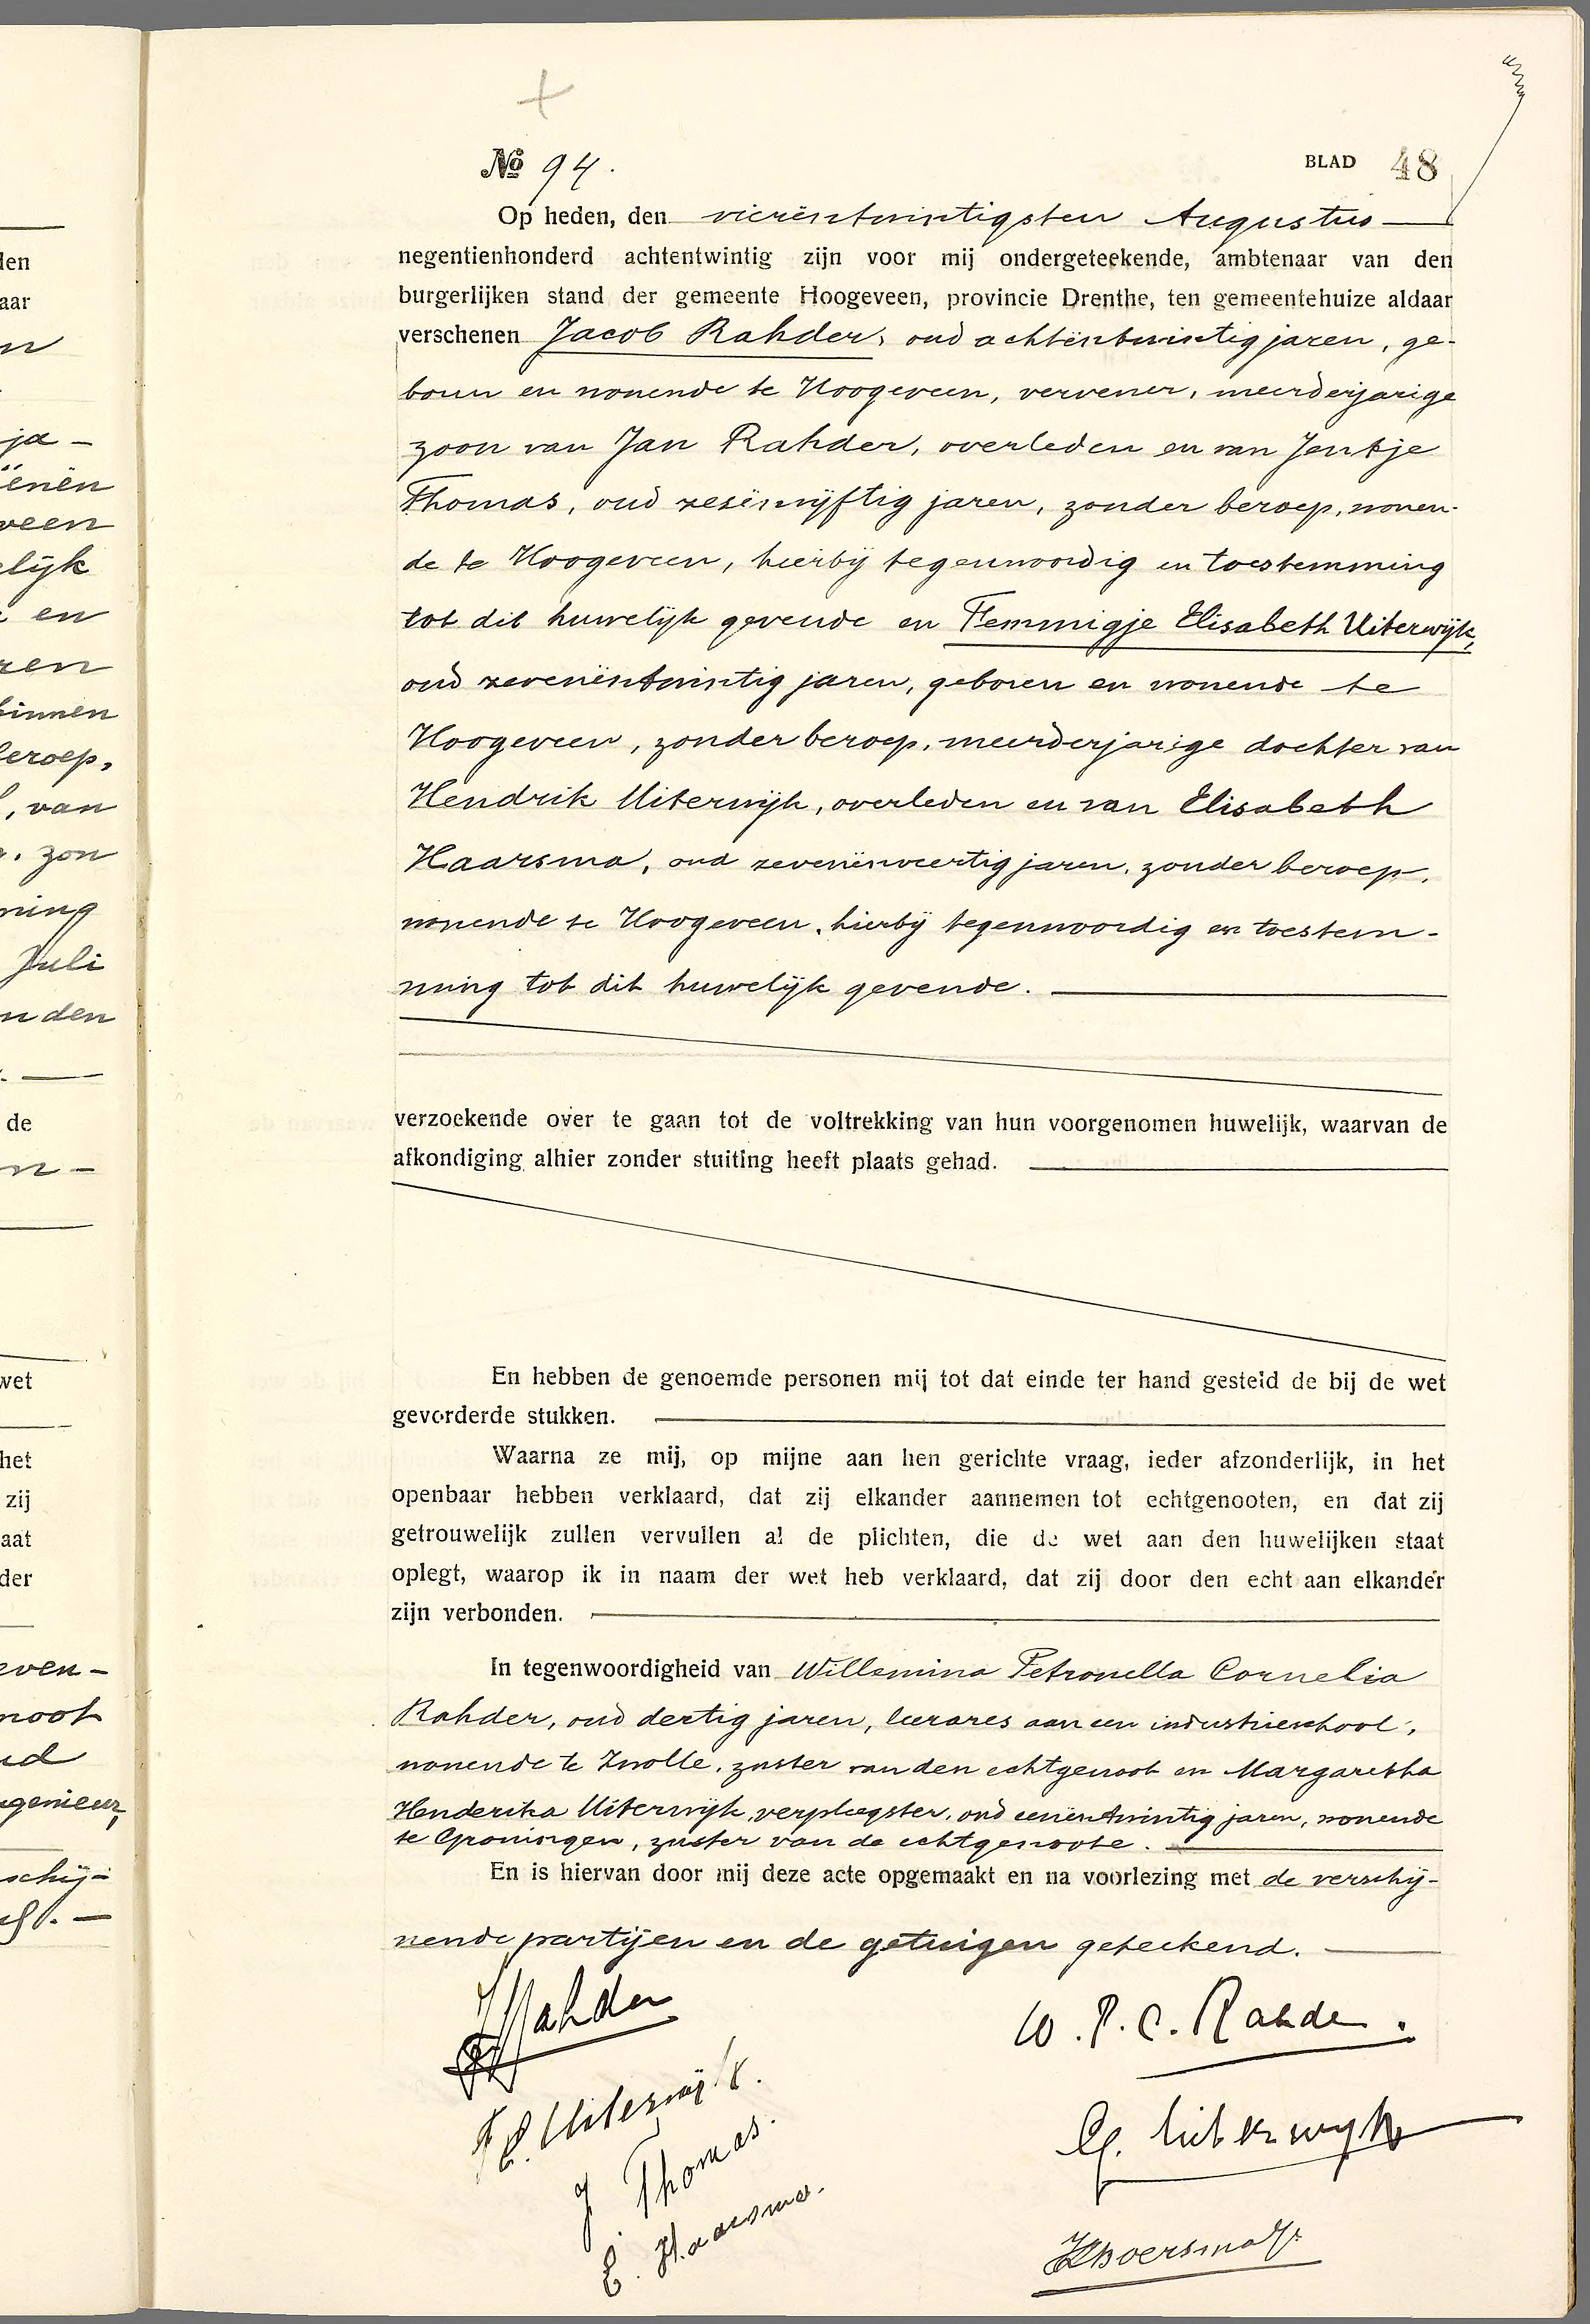 den
aar
n
ja-
ëenën
veen
elijk
en
ren
binnen
beroep,
, van
. zon
ning
Juli
n den
de
n-
wet
het
zij
aat
der
even-
noot
ud
ngenieur,
schij-
No 94.
BLAD 48
Op heden, den vierëntwintigsten Augustus
negentienhonderd achtentwintig zijn voor mij ondergeteekende, ambtenaar van den
burgerlijken stand der gemeente Hoogeveen, provincie Drenthe, ten gemeentehuize aldaar
verschenen Jacob Rahder, oud achtëntwintig jaren, ge-
boren en wonende te Hoogeveen, vervener, meerderjarige
zoon van Jan Rahder, overleden en van Jentje
Thomas, oud zesënvijftig jaren, zonder beroep, wonen-
de te Hoogeveen, hierbij tegenwoordig en toestemming
tot dit huwelijk gevende en Femmigje Elisabeth Uiterwijk,
oud zevenëntwintig jaren, geboren en wonende te
Hoogeveen, zonder beroep, meerderjarige dochter van
Hendrik Uiterwijk, overleden en van Elisabeth
Haarsma, oud zevenënveertig jaren, zonder beroep,
wonende te Hoogeveen, hierbij tegenwoordig en toestem-
ming tot dit huwelijk gevende.
verzoekende over te gaan tot de voltrekking van hun voorgenomen huwelijk, waarvan de
afkondiging alhier zonder stuiting heeft plaats gehad.
En hebben de genoemde personen mij tot dat einde ter hand gesteld de bij de wet
gevorderde stukken.
Waarna ze mij, op mijne aan hen gerichte vraag, ieder afzonderlijk, in het
openbaar hebben verklaard, dat zij elkander aannemen tot echtgenooten, en dat zij
getrouwelijk zullen vervullen al de plichten, die de wet aan den huwelijken staat
oplegt, waarop ik in naam der wet heb verklaard, dat zij door den echt aan elkander
zijn verbonden.
In tegenwoordigheid van Willemina Petronella Cornelia
Rahder, oud dertig jaren, leerares aan een industrieschool,
wonende te Zwolle, zuster van den echtgenoot en Margaretha
Henderika Uiterwijk, verpleegster, oud eenëntwintig jaren, wonende
te Groningen, zuster van de echtgenoote.
En is hiervan door mij deze acte opgemaakt en na voorlezing met de verschij-
nende partijen en de getuigen geteekend.
J Rahder
W. P. C. Rahder.
F E. Uiterwijk.
G. Uiterwijk
J. Thomas.
E. Haarsma.